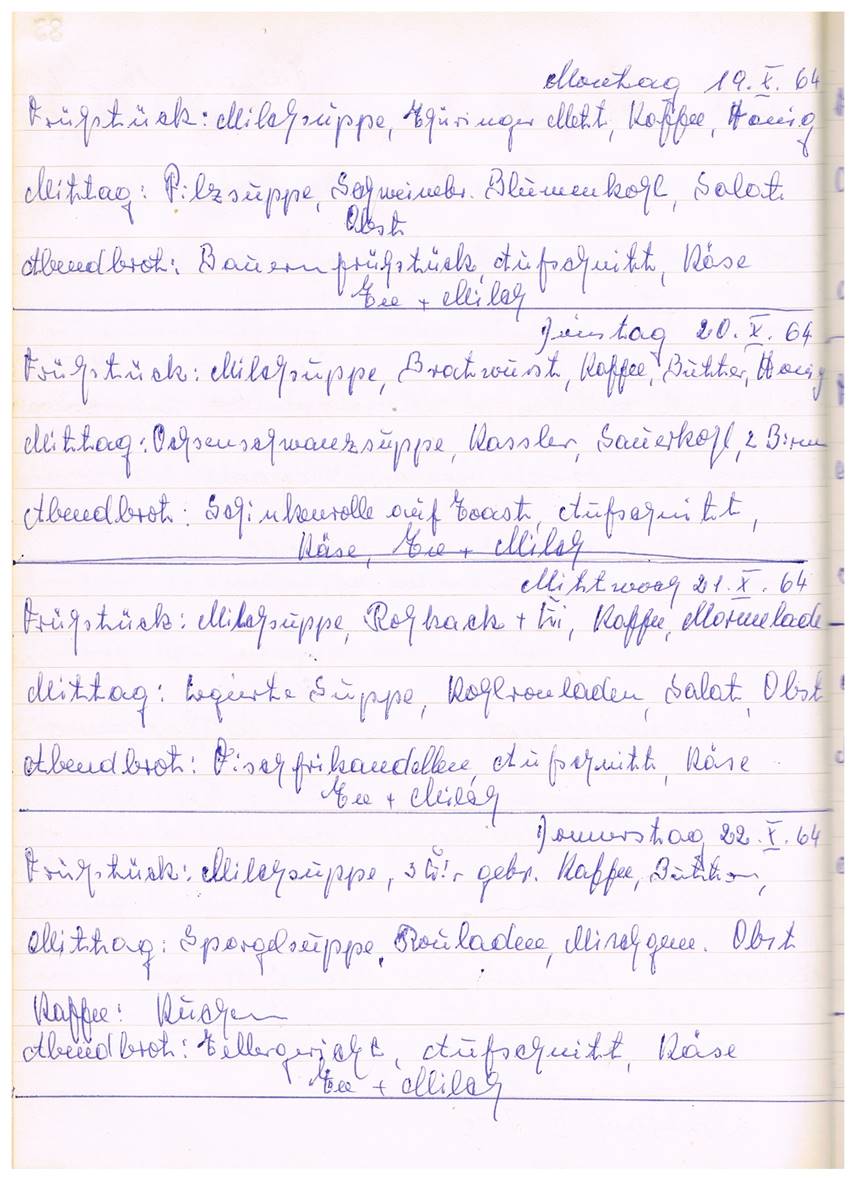 Montag 19. X. 64
Frühstück: Milchsuppe, Thüringer Mett, Kaffee, Honig
Mittag: Pilzsuppe, Schweinebr. Blumenkohl, Salat
Obst
Abendbrot: Bauernfrühstück, Aufschnitt, Käse
Tee + Milch
Dienstag 20. X. 64
Frühstück: Milchsuppe, Bratwurst, Kaffee, Butter, Honig
Mittag: Ochsenschwanzsuppe, Kassler, Sauerkohl, 2 Birnen
Abendbrot: Schinkenrolle auf Toast, Aufschnitt,
Käse, Tee + Milch
Mittwoch 21. X. 64
Frühstück: Milchsuppe, Rohhack + Ei, Kaffee, Marmelade
Mittag: Legierte Suppe, Kohlrouladen, Salat, Obst
Abendbrot: Fischfrikandellen, Aufschnitt, Käse
Tee + Milch
Donnerstag 22. X. 64
Frühstück: Milchsuppe, 3 Eier gebr. Kaffee, Butter,
Mittag: Spargelsuppe, Rouladen, Mischgem. Obst
Kaffee: Kuchen
Abendbrot: Tellergericht, Aufschnitt, Käse
Tee + Milch